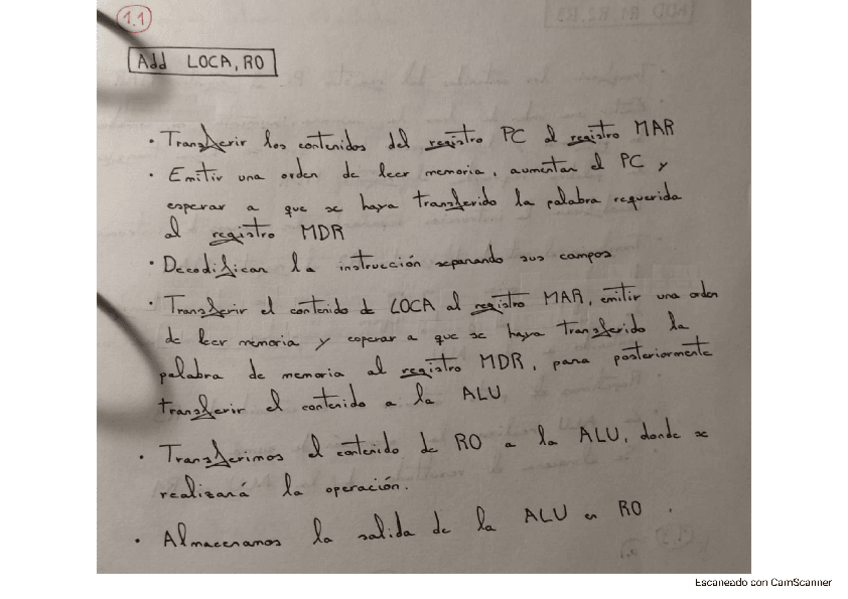 1.1
Add LOCA, R0
· Transferir los contenidos del registro PC al registro MAR
· Emitir una orden de leer memoria, aumentar el PC y
esperar a que se haya transferido la palabra requerida
al registro MDR
· Decodificar la instrucción separando sus campos
· Transferir el contenido de LOCA al registro MAR, emitir una orden
de leer memoria y esperar a que se haya transferido la
palabra de memoria al registro MDR, para posteriormente
transferir el contenido a la ALU
· Transferimos el contenido de R0 a la ALU, donde se
realizará la operación.
· Almacenamos la salida de la ALU en R0.
Escaneado con CamScanner